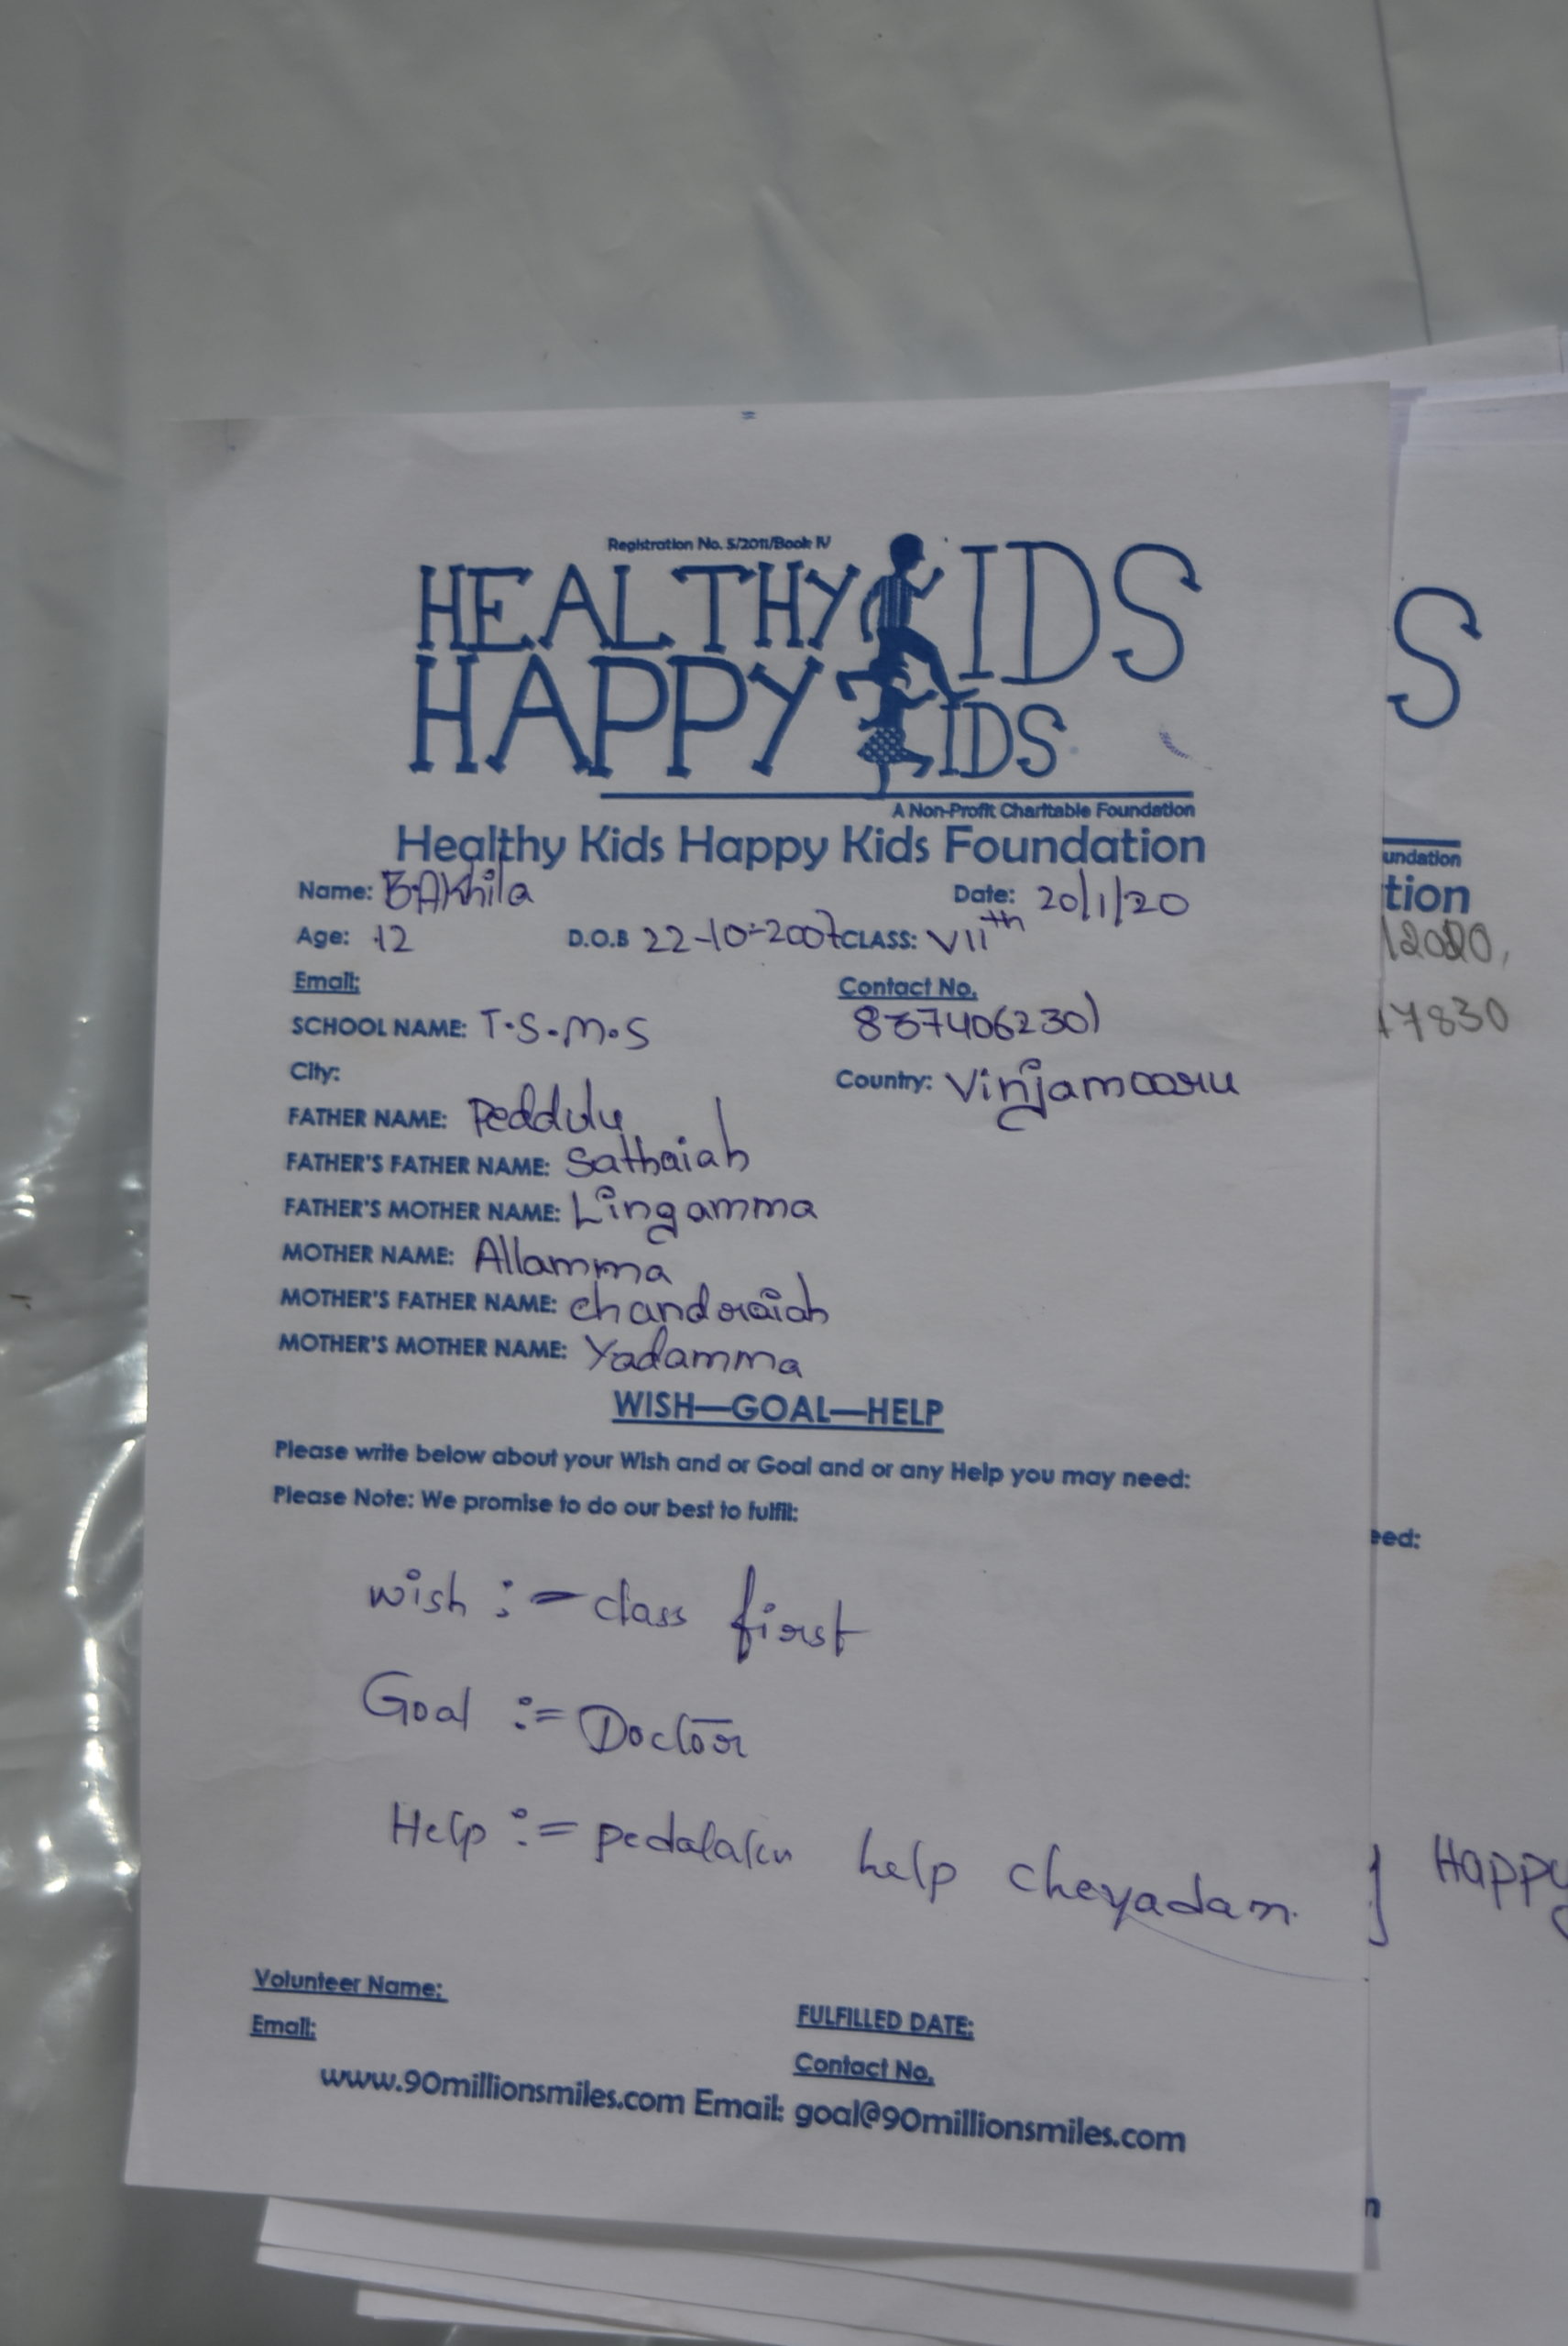 Registration No. 5/2011/Book IV
HEALTHY KIDS
HAPPY KIDS
A Non-Profit Charitable Foundation
Healthy Kids Happy Kids Foundation
Name: B.Akhila Date: 20/1/20
Age: 12 D.O.B 22-10-2007 CLASS: VIIth
Email: Contact No.
SCHOOL NAME: T.S.M.S 8374062301
City: Country: Vinjamooru
FATHER NAME: Peddulu
FATHER'S FATHER NAME: Sathaiah
FATHER'S MOTHER NAME: Lingamma
MOTHER NAME: Allamma
MOTHER'S FATHER NAME: chandraiah
MOTHER'S MOTHER NAME: Yadamma
WISH—GOAL—HELP
Please write below about your Wish and or Goal and or any Help you may need:
Please Note: We promise to do our best to fulfil:
wish :- class first
Goal := Doctor
Help := pedalaku help cheyadam.
Volunteer Name: FULFILLED DATE:
Email: Contact No.
www.90millionsmiles.com Email: goal@90millionsmiles.com
S
undation
tion
2020,
17830
eed:
Happy
n